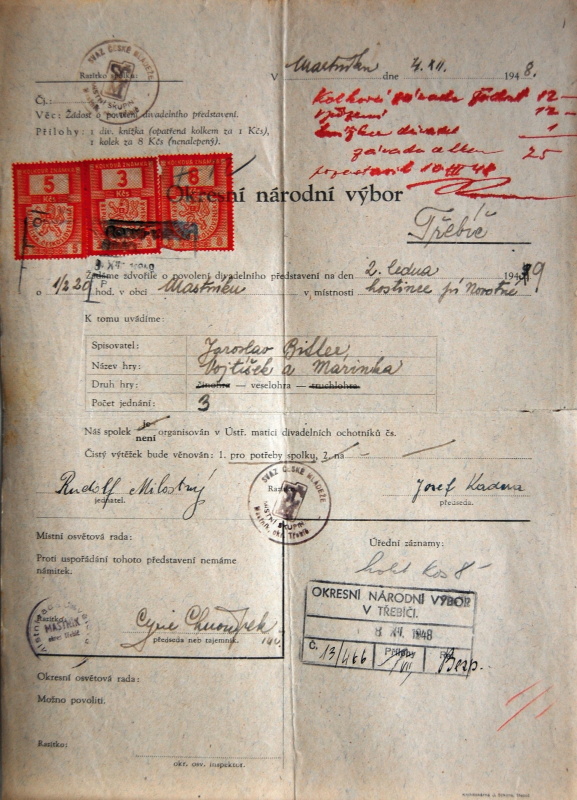 SVAZ ČESKÉ MLÁDEŽE
MÍSTNÍ SKUPINA
Razítko spolku:
V Mastníku dne 4. XII. 1948.
Čj.:
Věc: Žádost o povolení divadelního představení.
Přílohy: 1 div. knížka (opatřená kolkem za 1 Kčs),
1 kolek za 8 Kčs (nenalepený).
Kolková závada žádost 12—
12—
divadel 1
závada celkem 25
10 III 48
KOLKOVÁ ZNÁMKA KOLKOVÁ ZNÁMKA KOLKOVÁ ZNÁMKA
5 3 8
Kčs Kčs Kčs
Okresní národní výbor
Třebíč
Žádáme zdvořile o povolení divadelního představení na den 2. ledna 1949
o 1/2 20 hod. v obci Mastníku v místnosti hostinec pí Novotné
K tomu uvádíme:
Spisovatel: Jaroslav Bittee
Název hry: Vojtíšek a Mařinka
Druh hry: činohra — veselohra — truchlohra.
Počet jednání: 3
Náš spolek je/není organisován v Ústř. matici divadelních ochotníků čs.
Čistý výtěžek bude věnován: 1. pro potřeby spolku, 2. na —
SVAZ ČESKÉ MLÁDEŽE
MÍSTNÍ SKUPINA
Mastník, okr. Třebíč
Rudolf Milostný Josef Kadrna
jednatel. předseda.
Místní osvětová rada:
Proti uspořádání tohoto představení nemáme
námitek.
Úřední záznamy:
Kčs 8-
MASTNÍK
okres Třebíč
Razítko:
předseda neb tajemník.
OKRESNÍ NÁRODNÍ VÝBOR
V TŘEBÍČI.
8 XII. 1948
Č. 13/466 Přílohy 1/VII Ref. Bezp.
Okresní osvětová rada:
Možno povoliti.
Razítko:
okr. osv. inspektor.